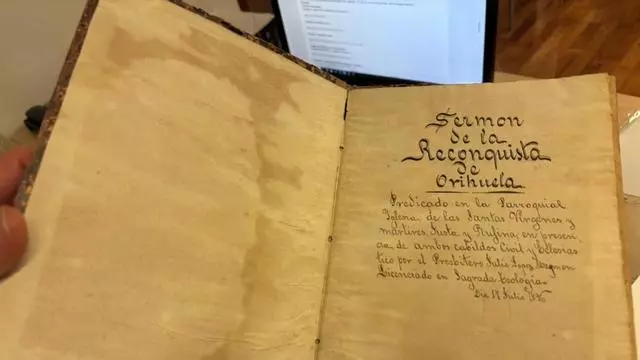 Sermon
de la
Reconquista
de
Orihuela
Predicado en la Parroquial
Iglena de las Santas Virgenes y
martires, Justa y Rufina, en presen-
cia, de ambos cabildos Civil y Eclesias
tico por el Presbitero Julio Lopez
Licenciado en Sagrada teología.
Dia 17 Julio